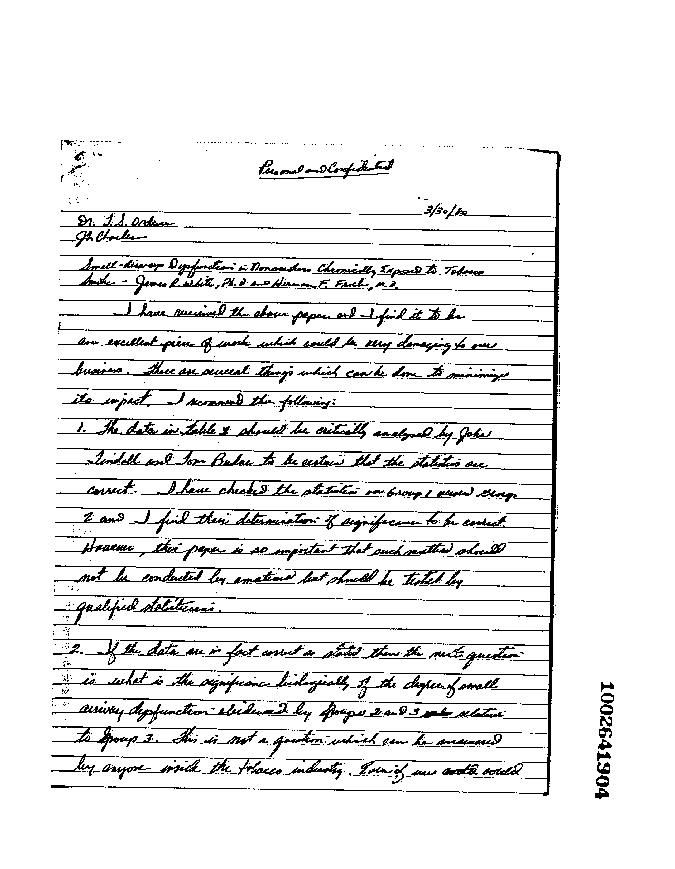 Personal and Confidential
3/30/80
Dr. T.S. Osdene
Jet Charles
Small-Airways Dysfunction in Nonsmokers Chronically Exposed to Tobacco
Smoke - James R. White, Ph.D. and Herman F. Froeb, M.D.
I have received the above paper and I find it to be
an excellent piece of work which could be very damaging to our
business. There are several things which can be done to minimize
its impact. I recommend the following:
1. The data in table 3 should be critically analyzed by John
Tindall and Tom to be certain that the statistics are
correct. I have checked the statistics on Group 1 versus Group
2 and I find their determination of significance to be correct.
However, this paper is so important that such matters should
not be conducted by amateurs but should be tested by
qualified statisticians.
2. If the data are in fact correct as stated then the next question
is what is the significance biologically of the degree of small
airway dysfunction evidenced by Groups 2 and 3 relative
to Group 3. This is not a question which can be answered
by anyone inside the tobacco industry. Even if we could
1002641904